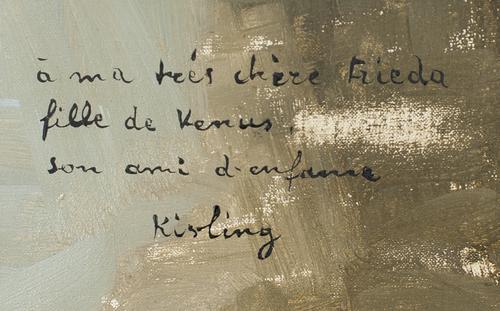 à ma trés chère Frieda
fille de Venus
son ami d'enfance
Kisling